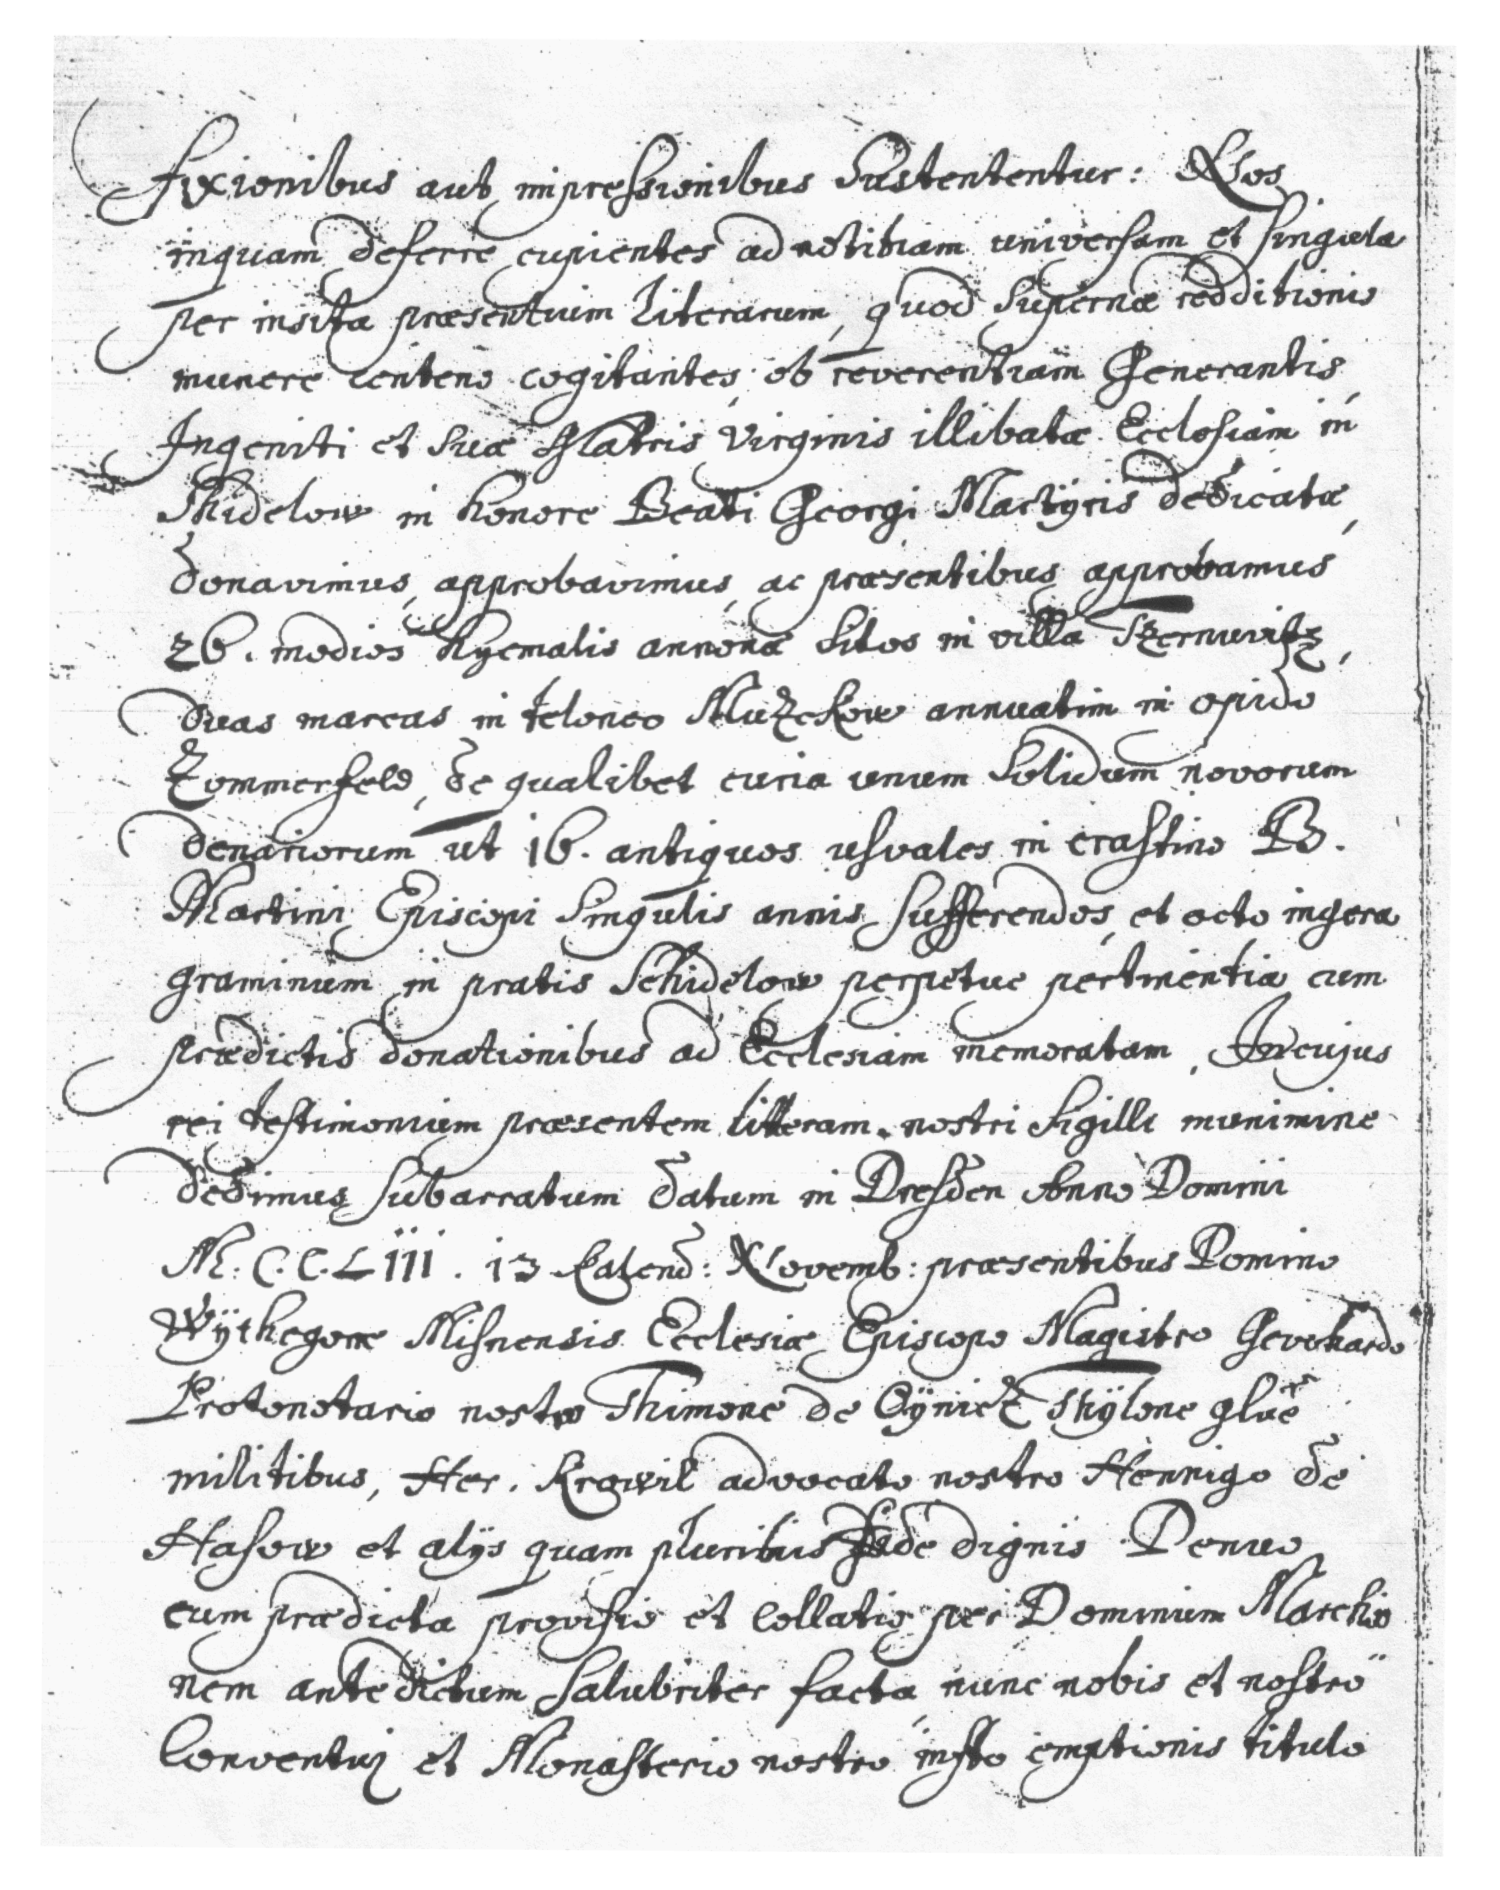 fixionibus aut impressionibus Sustententur: Nos
inquam deferre cupientes ad notitiam universam et singula
per insita præsentium literarum, quod Supernæ redditionis
munere centeno cogitantes, ob reverentiam Generantis
Ingeniti et Suæ Matris Virginis illibatæ Ecclesiam in
Shidelow in honore Beati Georgi Martÿris dedicatæ,
donavimus, approbavimus, ac præsentibus approbamus
26. modios hyemalis annonæ Sitos in villa Tzernuvitz,
duas marcas in teloneo Muzckow annuatim in opido
Zommerfeld, de qualibet curia unum Solidum novorum
denariorum ut 16. antiquos usvales in crastino B.
Martini Episcopi Singulis annis Sufferendos, et octo ingera
graminum in pratis Schidelow perpetue pertinentia cum
prædictis donationibus ad Ecclesiam memoratam, In cujus
rei testimonium præsentem litteram nostri Sigilli munimine
dedimus Subarratum datum in Dresden Anno Domini
M. C. C. L III. 13 Kalend: Novemb: præsentibus Domino
Wÿthegone Misnensis Ecclesiæ Episcopo Magistro Gevehardo
Protonotario nostro Thimone de Cÿnicz Thÿlone
militibus, Her. Krowil advocato nostro Hennigo de
Hasow et alÿs quam pluribus fide dignis Denuo
cum prædicta provisio et Collatio per Dominum Marchio
nem antedictum Salubriter facta, nunc nobis et nostro
Conventuj et Monasterio nostro insto emptionis titulo